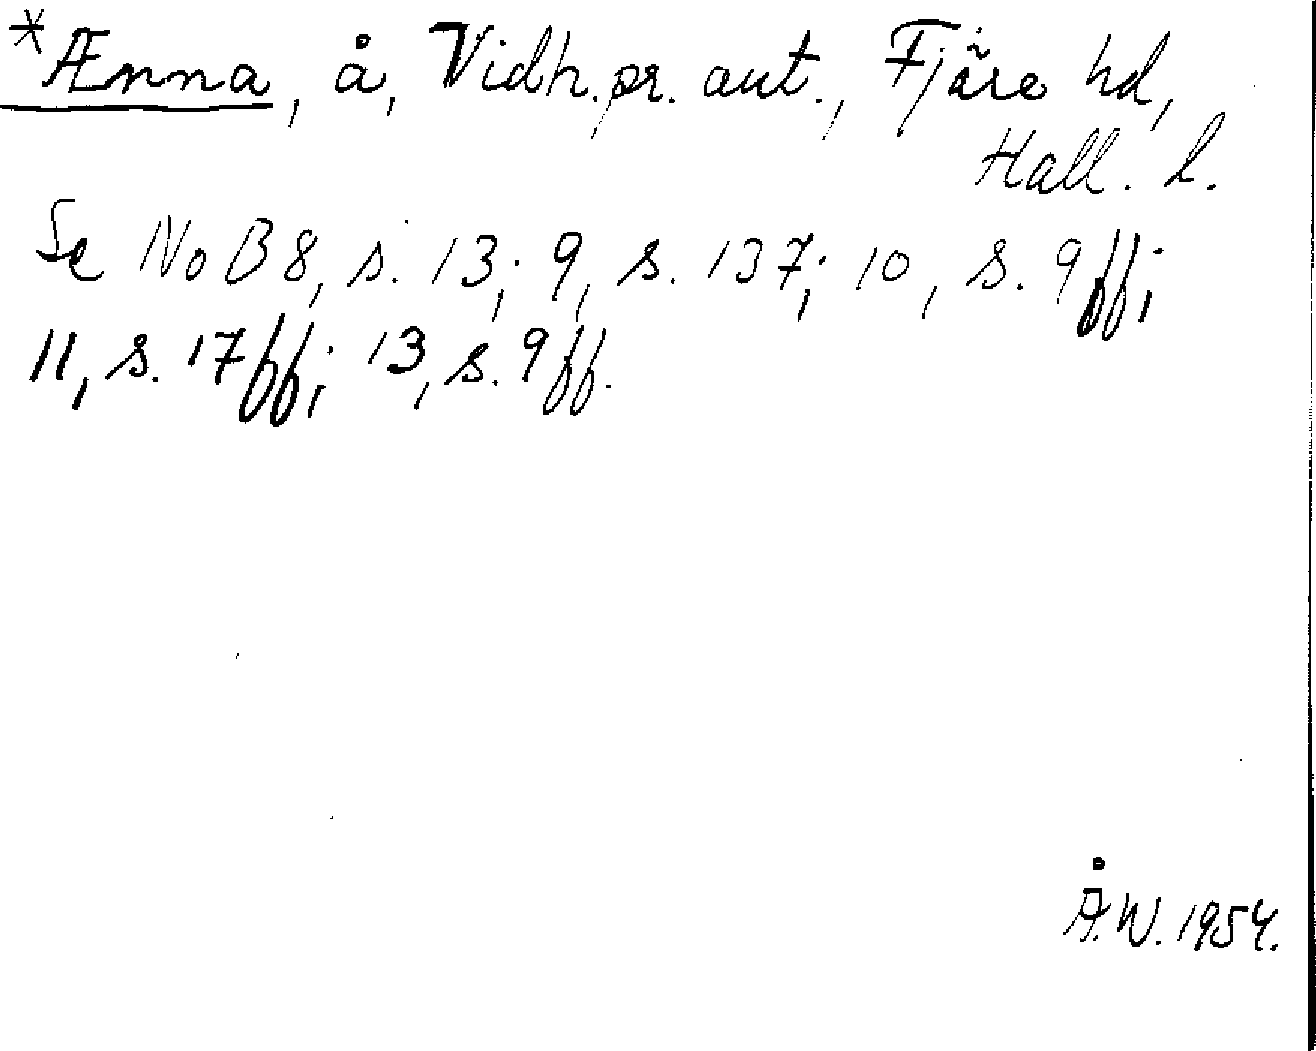 *Ænna, å, Vidh.pr. aut., Fjäre hd,
Hall. l.
Se NoB 8, s. 13; 9, s. 137; 10, s. 9ff;
11, s. 17ff; 13, s. 9ff.
Å.W. 1954.